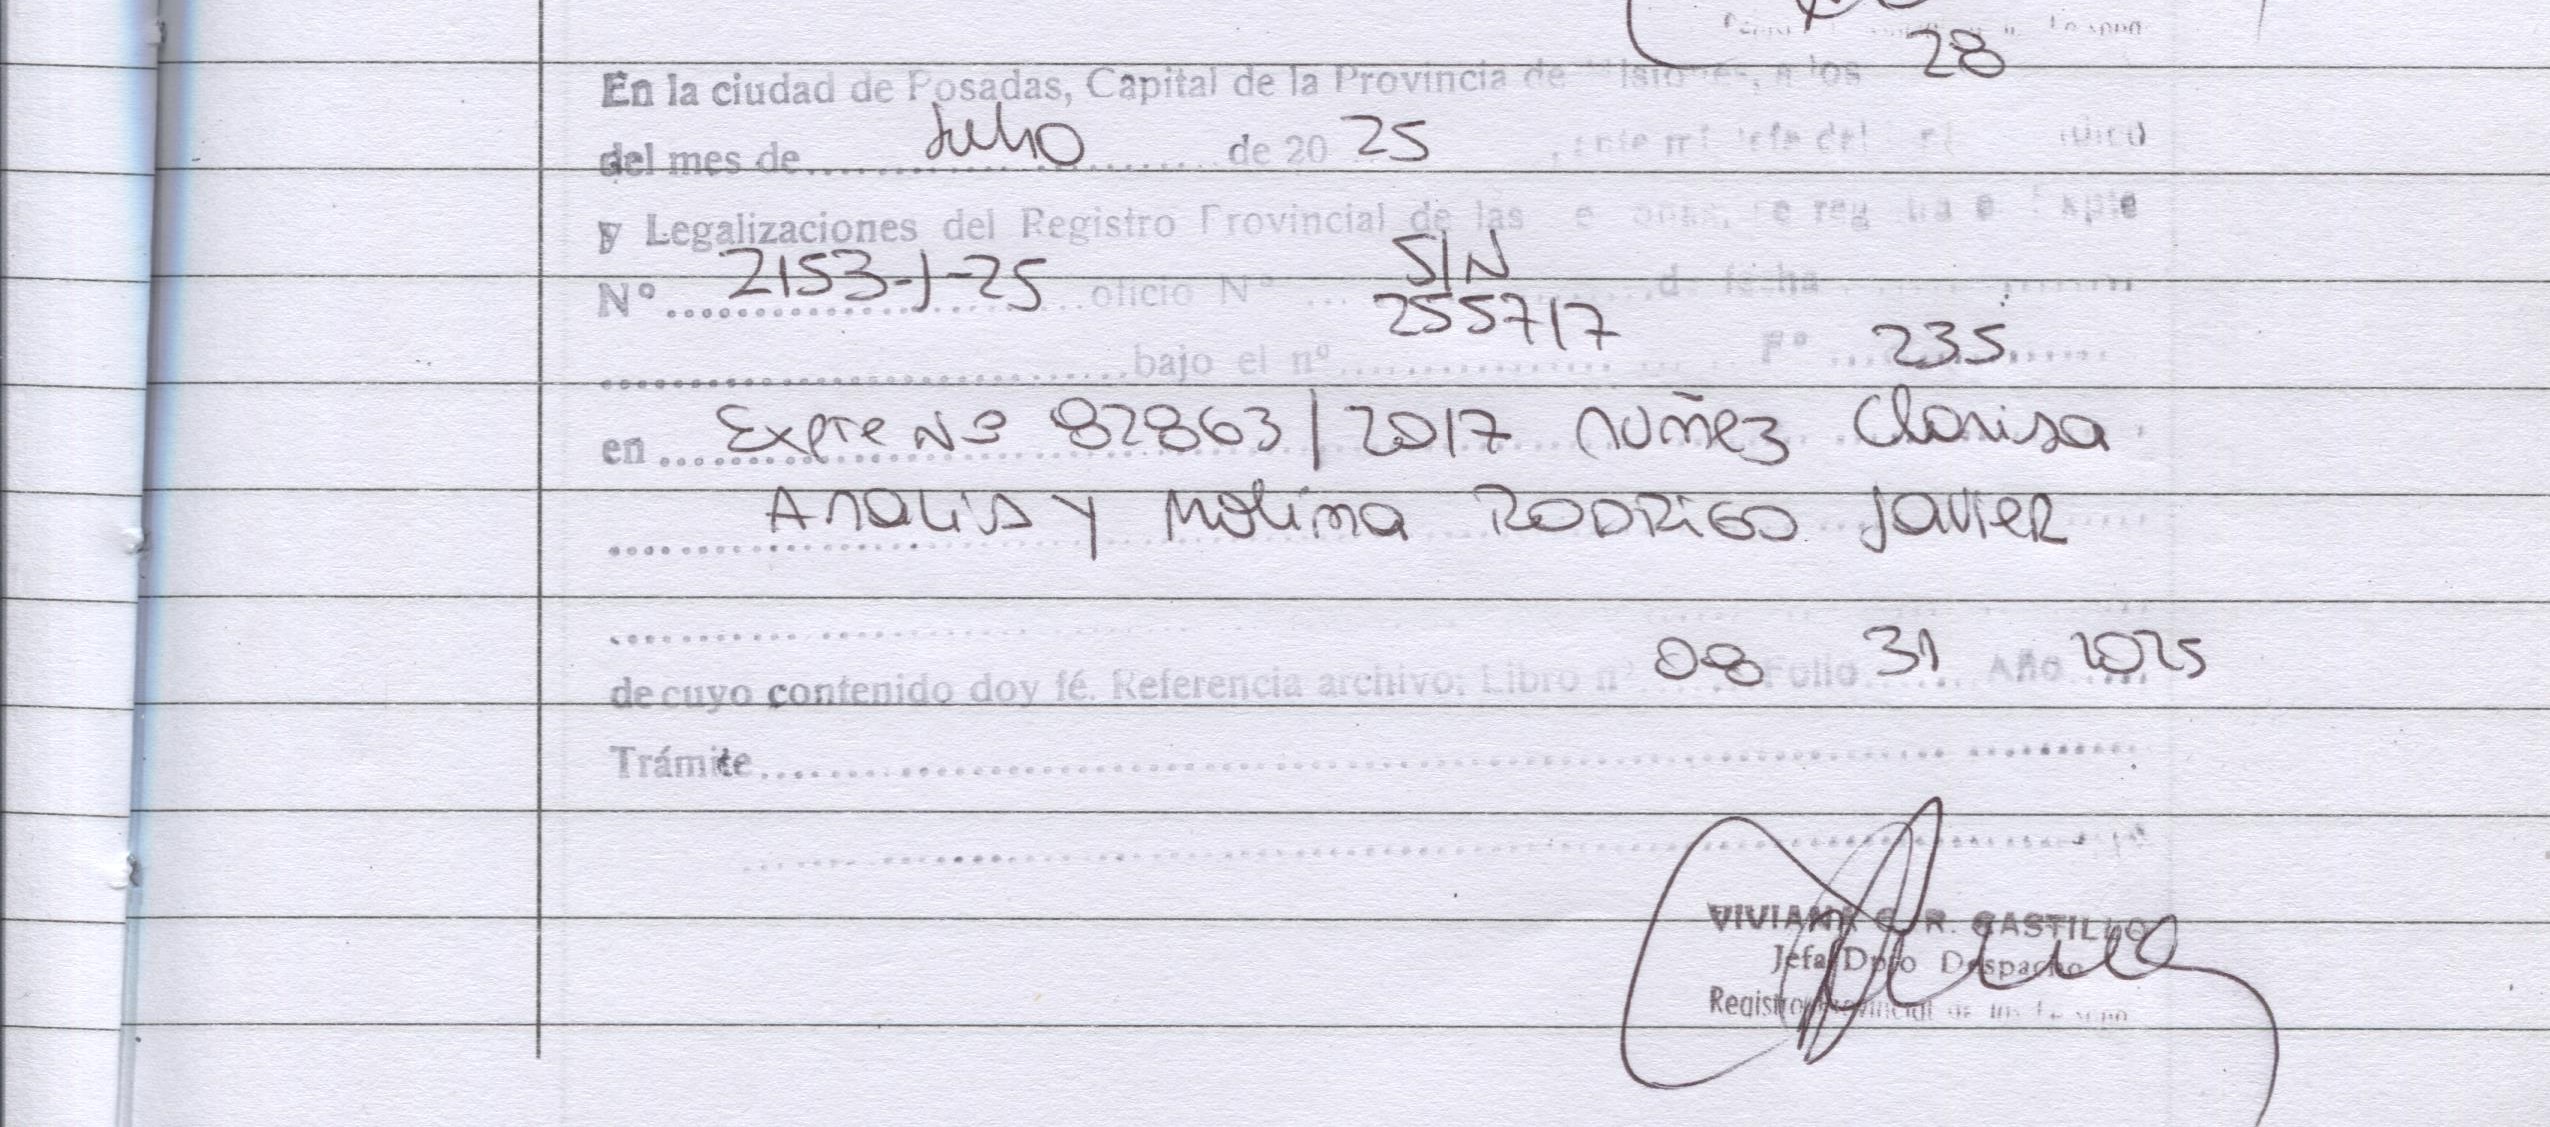 28
En la ciudad de Posadas, Capital de la Provincia de Misiones, a los
del mes de Julio de 20 25 , ante mi Jefa del
y Legalizaciones del Registro Provincial de las e registra e Expte
Nº 2153-J-25 oficio Nº S/N de fecha
bajo el nº 255717 Fº 235
en Expte Nº 82863/2017 Nuñez Clarisa
Analia y Molina Rodrigo Javier
de cuyo contenido doy fé. Referencia archivo: Libro nº 08 Folio 31 Año 2025
Trámite
VIVIANA C. R. CASTILLO
Jefa Dpto Despacho
Registro Provincial de las Person